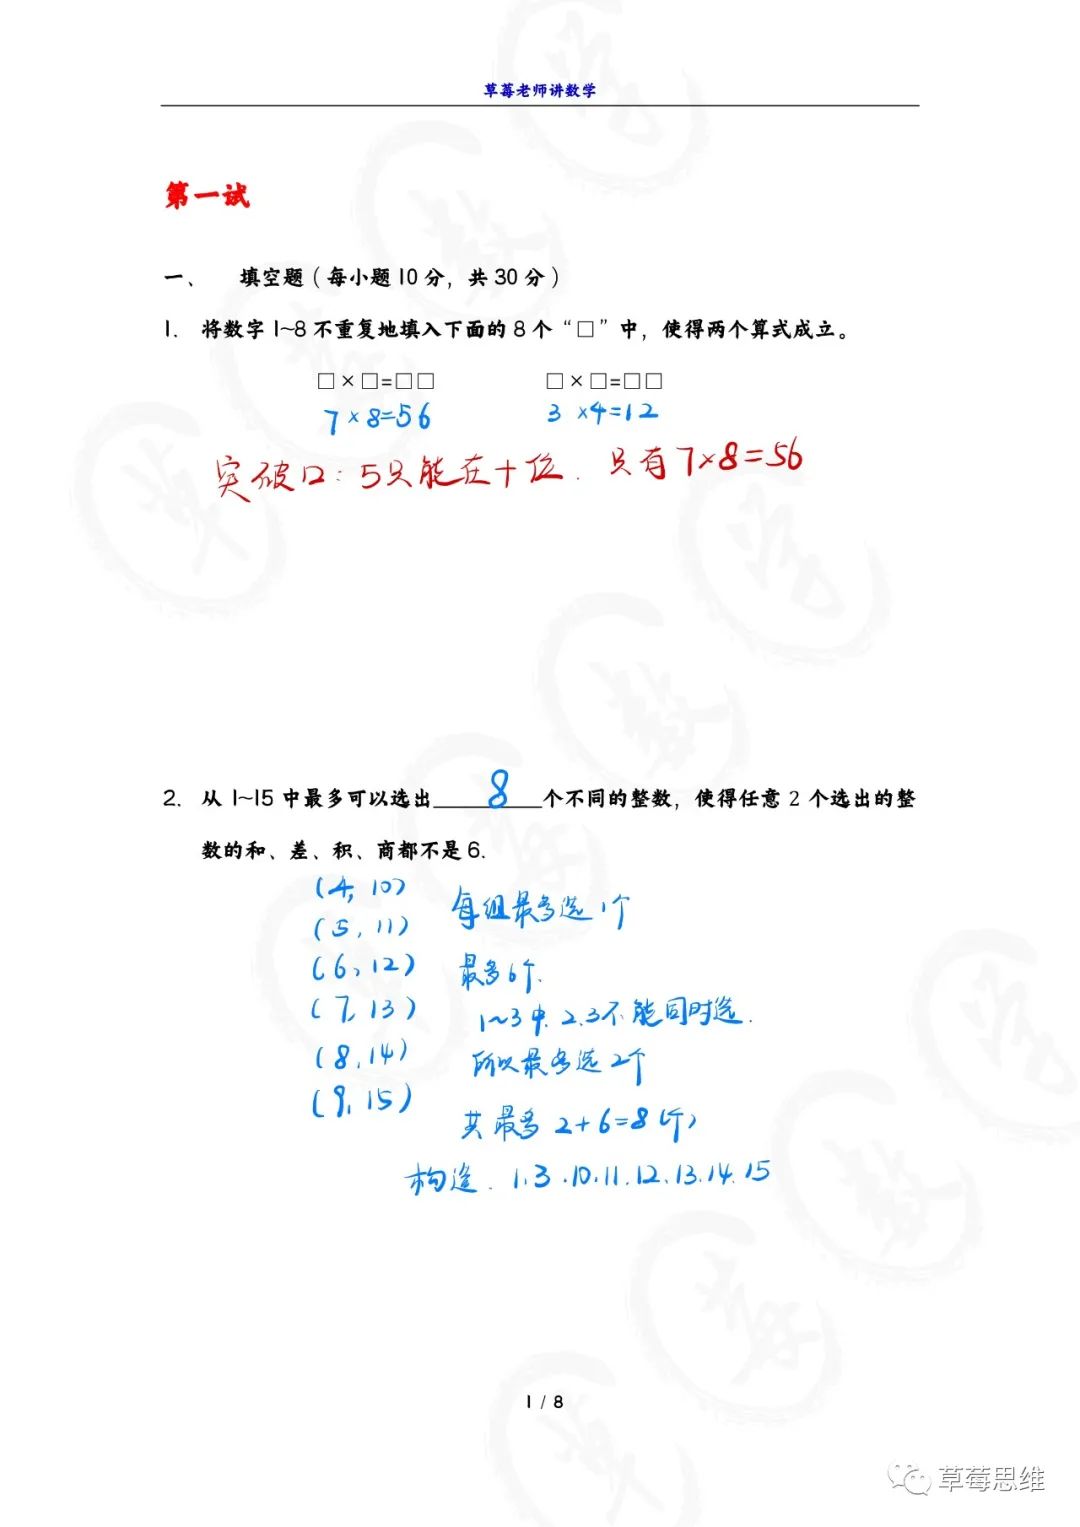 草莓老师讲数学
第一试
一、 填空题（每小题10分，共30分）
1. 将数字1~8不重复地填入下面的8个“□”中，使得两个算式成立。
□×□=□□ □×□=□□
7×8=56 3×4=12
突破口：5只能在十位．只有7×8=56
2. 从1~15中最多可以选出 8 个不同的整数，使得任意2个选出的整
数的和、差、积、商都不是6.
(4, 10)
(5, 11) 每组最多选1个
(6, 12) 最多6个.
(7, 13) 1~3中. 2.3不能同时选.
(8, 14) 所以最多选2个
(9, 15) 共最多 2+6=8(个)
构造. 1.3.10.11.12.13.14.15
1 / 8
草莓思维